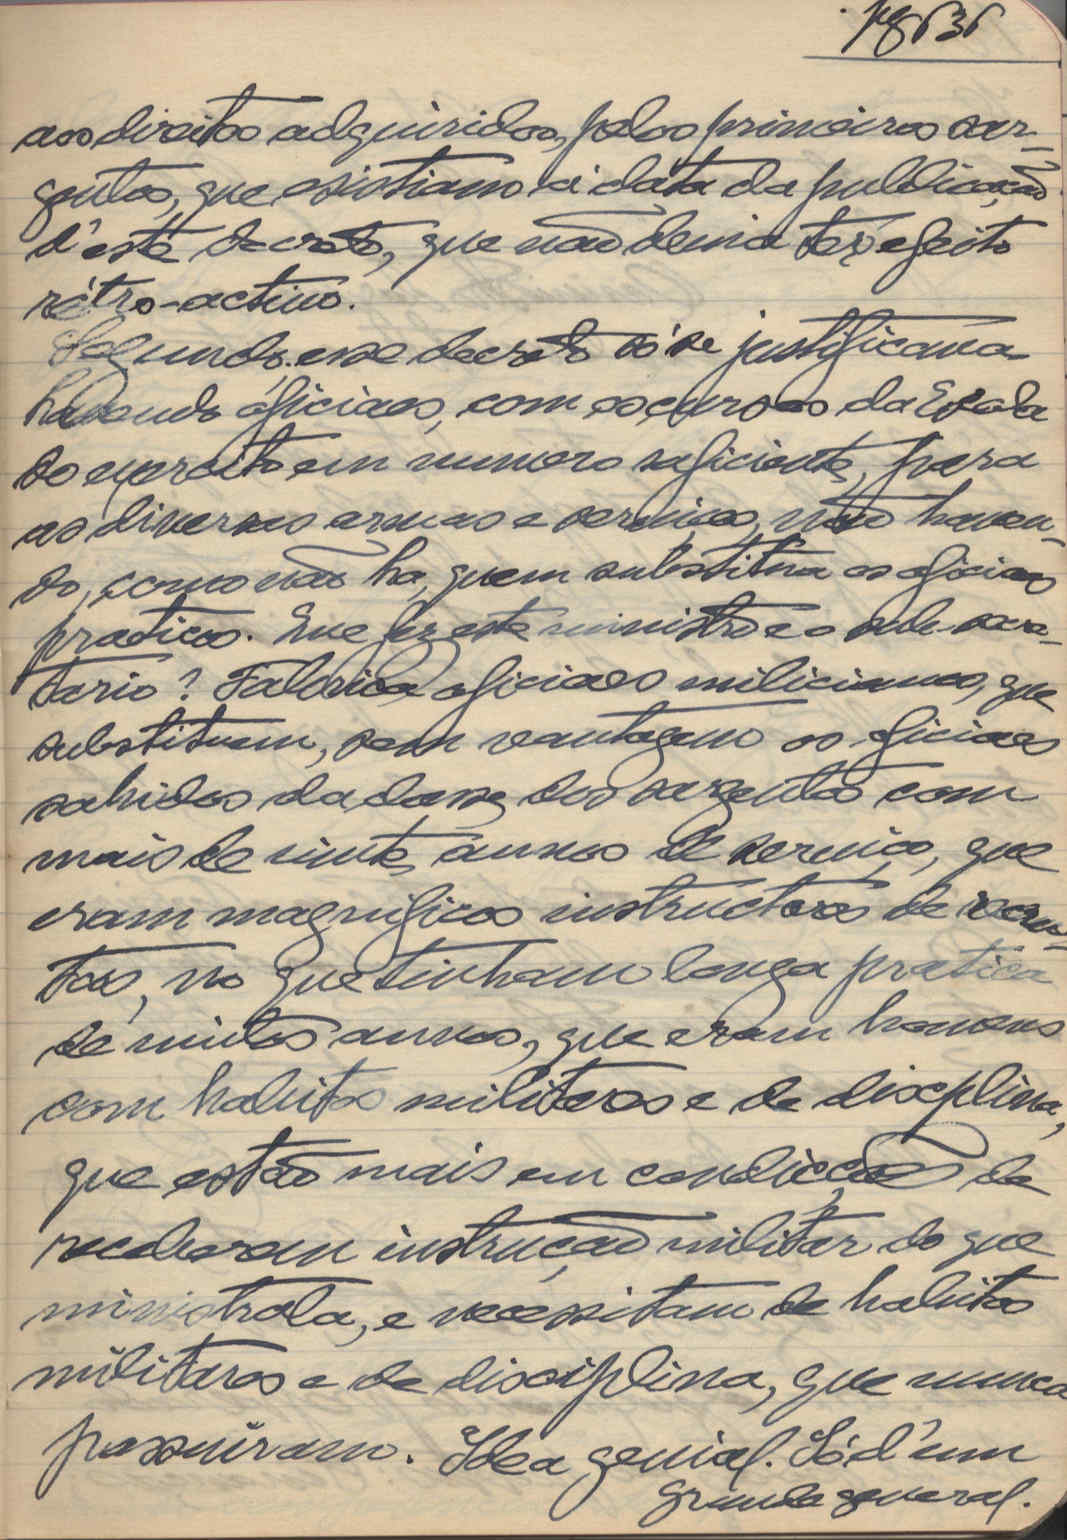 aos direitos adquiridos, pelos primeiros sar-
gentos, que existiam á data da publicação
d'este decreto, que não devia ter efeito
rétro-activo.
Segundo, esse decreto só se justificava
havendo oficiaes, com os cursos da Escola
do exercito em numero suficiente, para
as diversas armas e serviços, não haven-
do, como não ha, quem substitua os oficiaes
praticos. Que fez este ministro e o sub-secre-
tario? Fabrica oficiaes milicianos, que
substituem, sem vantagem os oficiaes
sahidos da classe dos sargentos com
mais de vinte annos de serviço, que
eram magnificos instructores de recru-
tas, no que tinham longa pratica
de muitos annos, que eram homens
com habitos militares e de disciplina,
que estão mais em condicções de
receberem instrução militar do que
ministral-a, e necessitam de habitos
militares e de disciplina, que nunca
possuiram. Idea genial. Só d'um
grande general.